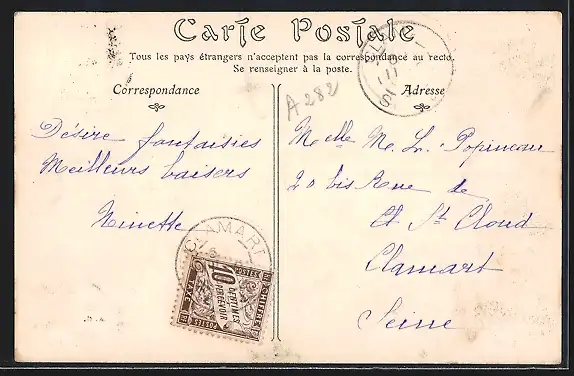 Carte Postale
Tous les pays étrangers n'acceptent pas la correspondance au recto.
Se renseigner à la poste.
Correspondance
Adresse
A 282
Désire fantaisies
Meilleurs baisers
Ninette
Melle M. L. Popincour
20 bis Rue de
St Cloud
Clamart
Seine
CLAMART
10 CENTIMES
À PERCEVOIR
CHIFFRE
TAXE
POSTES